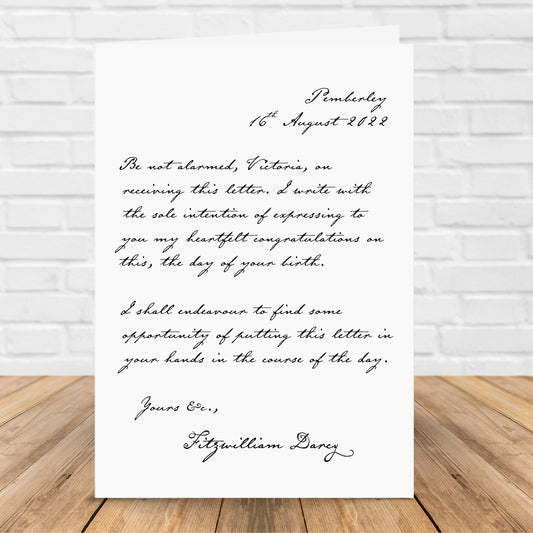 Pemberley
16th August 2022
Be not alarmed, Victoria, on
receiving this letter. I write with
the sole intention of expressing to
you my heartfelt congratulations on
this, the day of your birth.
I shall endeavour to find some
opportunity of putting this letter in
your hands in the course of the day.
Yours &c.,
Fitzwilliam Darcy